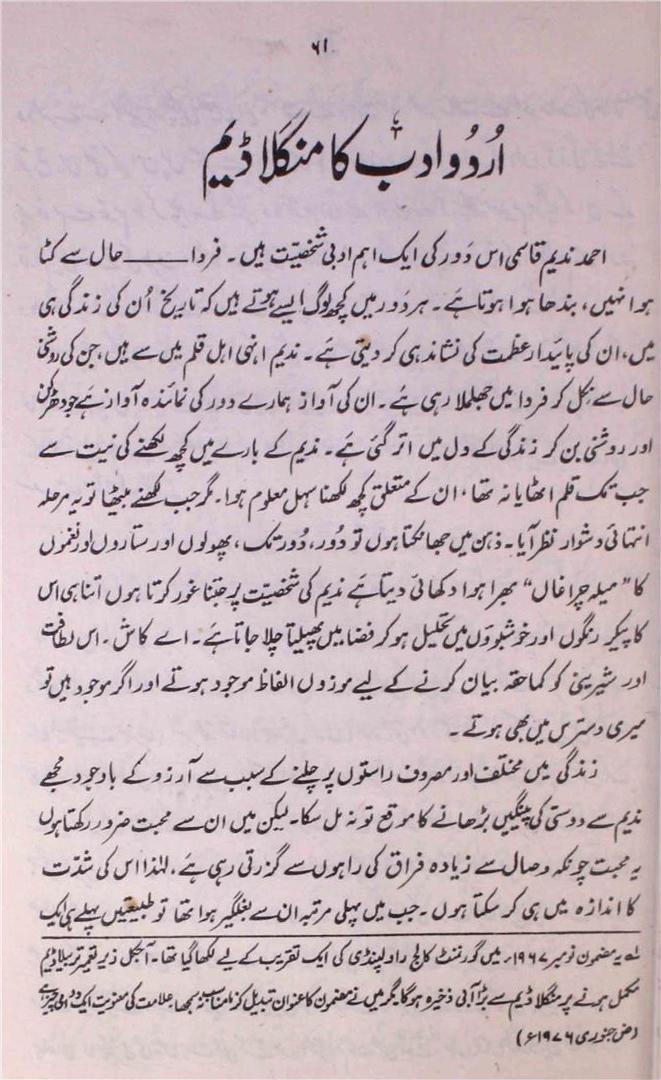 ۶۱
اُردُو ادب کا منگلا ڈیم
احمد ندیم قاسمی اس دَور کی ایک اہم ادبی شخصیّت ہیں۔ فردا ——— حال سے کٹا
ہوا نہیں، بندھا ہوا ہوتا ہے۔ ہر دَور میں کچھ لوگ ایسے ہوتے ہیں کہ تاریخ اُن کی زندگی ہی
میں، ان کی پائیدار عظمت کی نشاندہی کر دیتی ہے۔ ندیم انہی اہل قلم میں سے ہیں، جن کی روشنی
حال سے نکل کر فردا میں جھلملا رہی ہے۔ ان کی آواز ہمارے دور کی نمائندہ آواز ہے جو دھڑکن
اور روشنی بن کر زندگی کے دل میں اتر گئی ہے۔ ندیم کے بارے میں کچھ لکھنے کی نیت سے
جب تک قلم اٹھایا نہ تھا، ان کے متعلق کچھ لکھنا سہل معلوم ہوا۔ مگر جب لکھنے بیٹھا تو یہ مرحلہ
انتہائی دشوار نظر آیا۔ ذہن میں جھانکتا ہوں تو دُور، دُور تک، پھولوں اور ستاروں اور نغموں
کا ”میلہ چراغاں“ بھرا ہوا دکھائی دیتا ہے ندیم کی شخصیّت پر جتنا غور کرتا ہوں اتنا ہی اس
کا پیکر رنگوں اور خوشبوؤں میں تحلیل ہو کر فضا میں پھیلتا چلا جاتا ہے۔ اے کاش۔ اس لطافت
اور شیرینی کو کماحقہ بیان کرنے کے لیے موزوں الفاظ موجود ہوتے اور اگر موجود ہیں تو
میری دسترس میں بھی ہوتے۔
زندگی میں مختلف اور مصروف راستوں پر چلنے کے سبب سے آرزو کے باوجود مجھے
ندیم سے دوستی کی پینگیں بڑھانے کا موقع تو نہ مل سکا۔ لیکن میں ان سے محبت ضرور رکھتا ہوں
یہ محبت چونکہ وصال سے زیادہ فراق کی راہوں سے گزرتی رہی ہے، لہٰذا اس کی شدّت
کا اندازہ میں ہی کر سکتا ہوں۔ جب میں پہلی مرتبہ ان سے بغلگیر ہوا تھا تو طبیعتیں پہلے ہی ایک
لہ یہ مضمون نومبر ۱۹۶۷ء میں گورنمنٹ کالج راولپنڈی کی ایک تقریب کے لیے لکھا گیا تھا۔ آجکل زیر تعمیر تربیلا ڈیم
مکمل ہونے پر منگلا ڈیم سے بڑا آبی ذخیرہ ہوگا۔ مگر میں نے مضمون کا عنوان تبدیل کرنا مناسب نہ سمجھا، علامت کی معنویت ایک
(ض جنوری ۱۹۷۶ء)